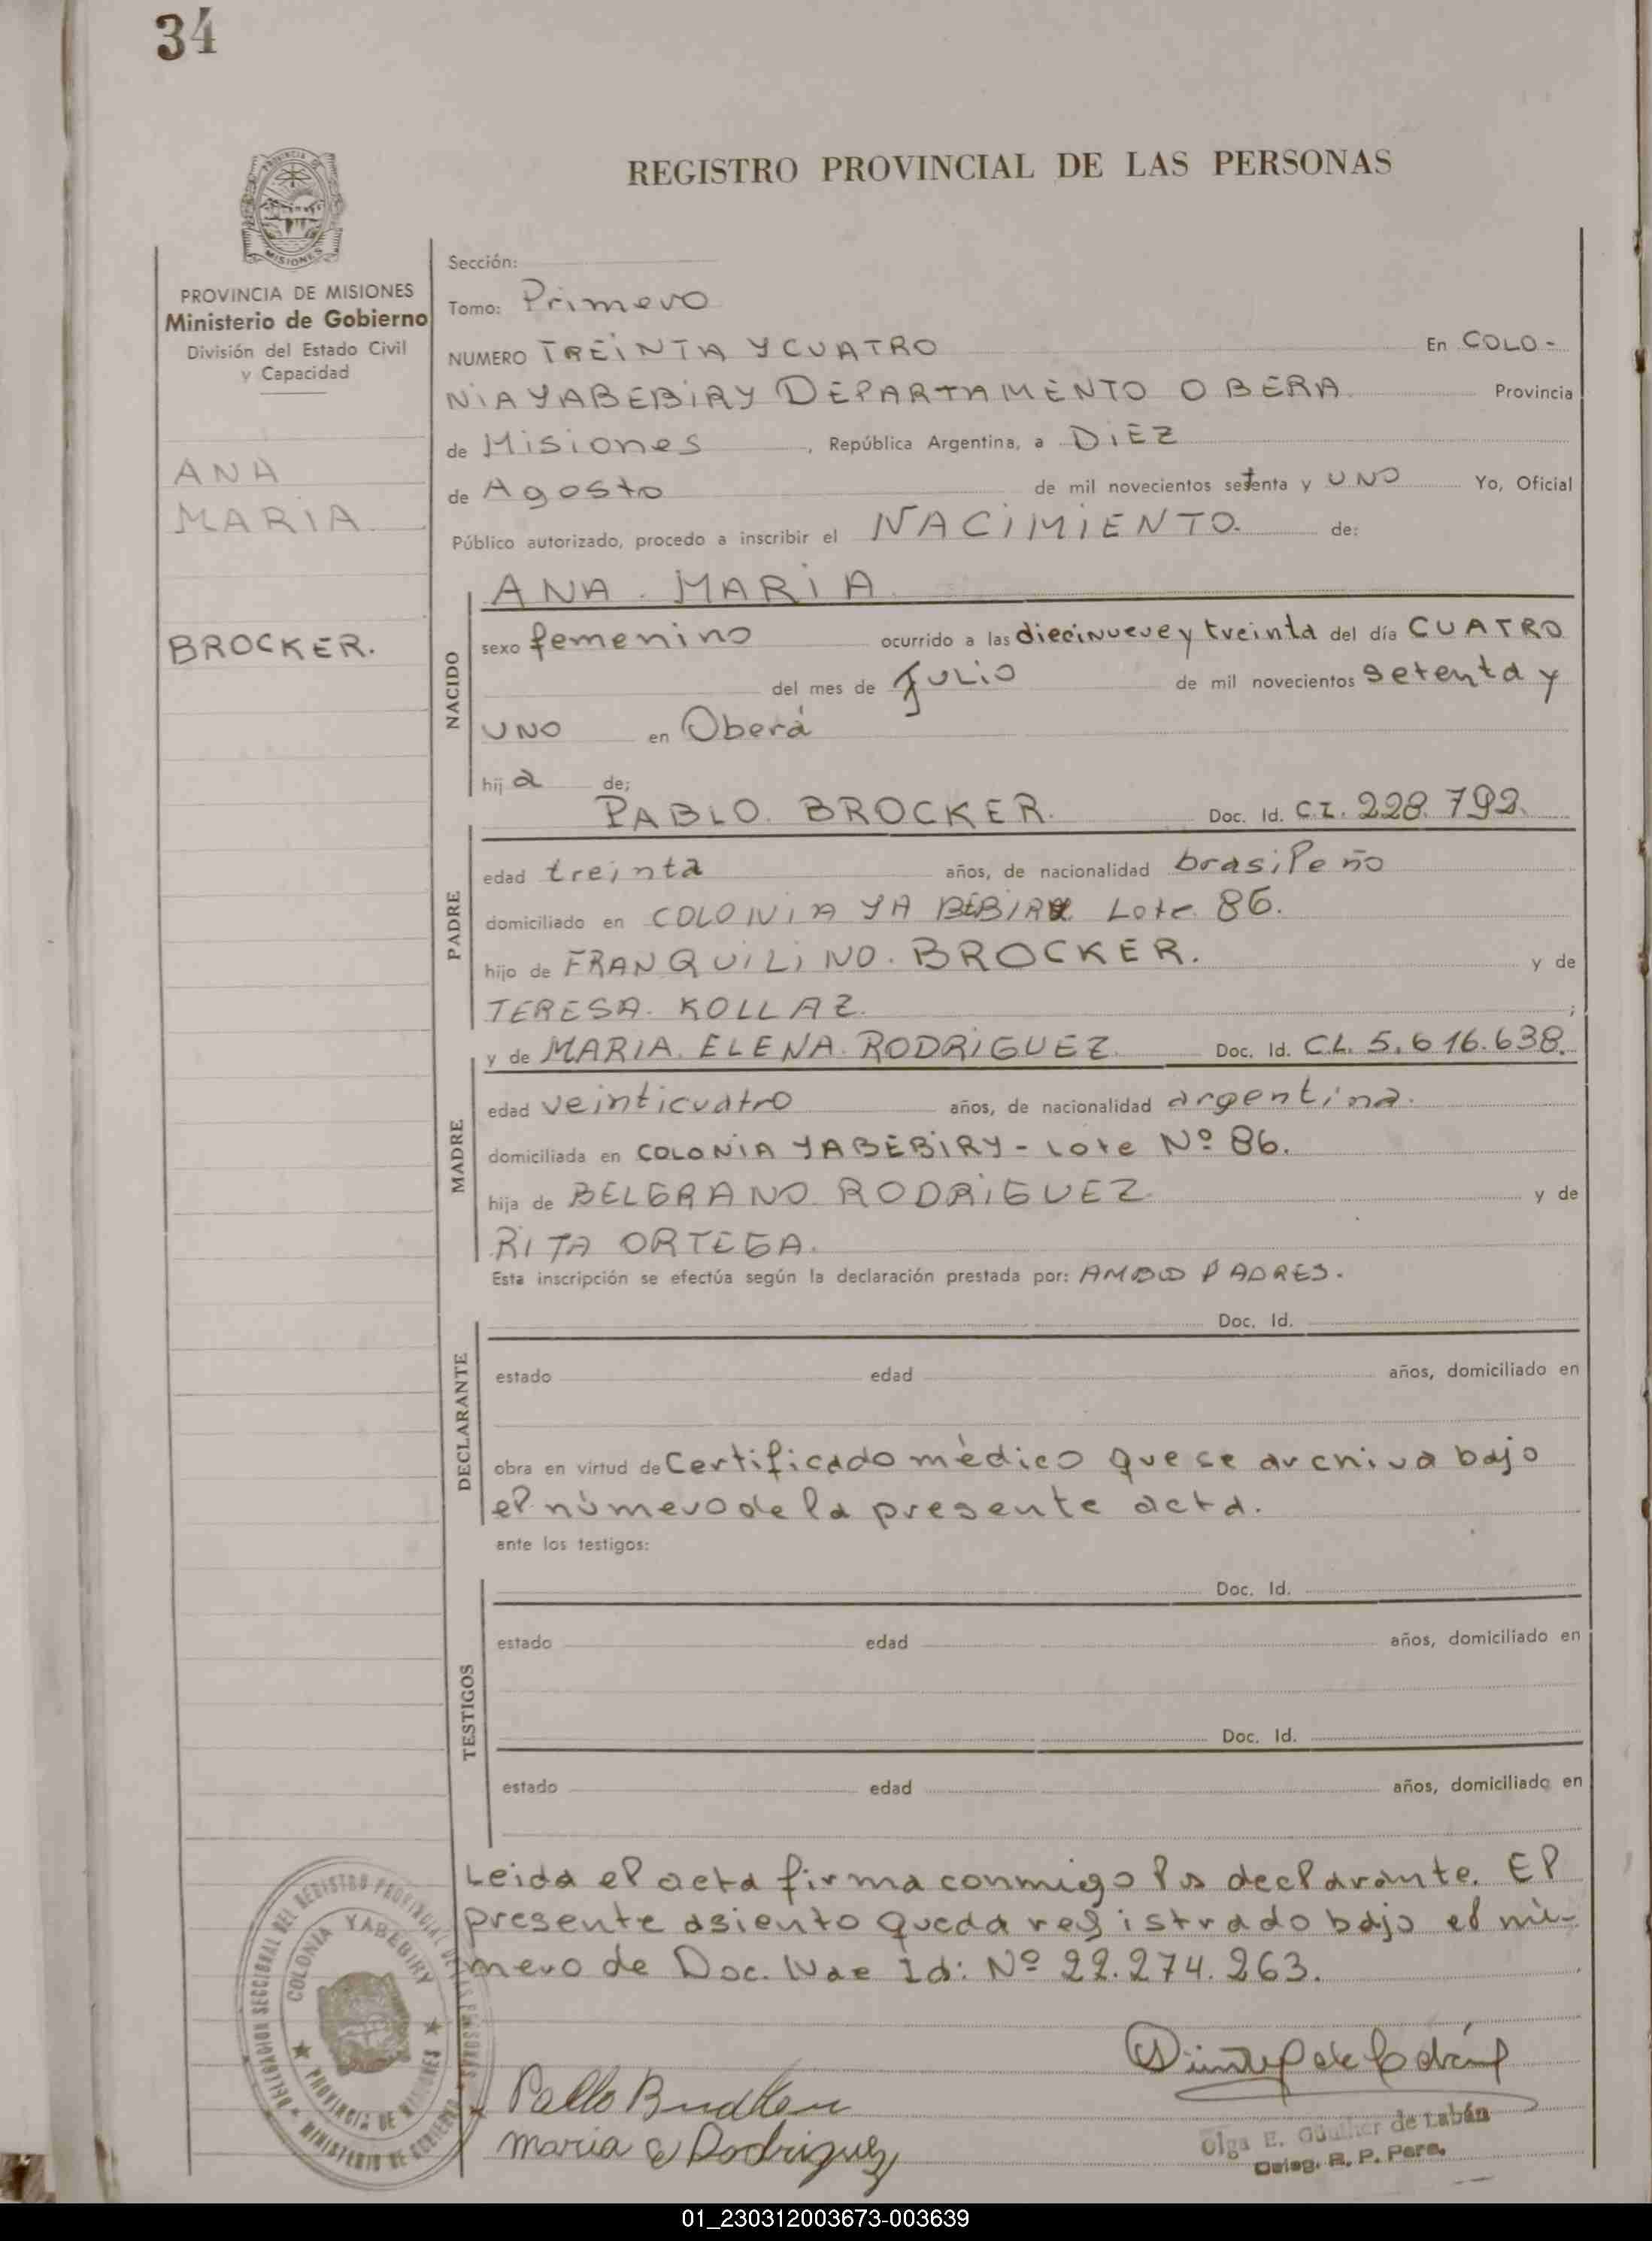 34
REGISTRO PROVINCIAL DE LAS PERSONAS
MISIONES
PROVINCIA DE MISIONES
Ministerio de Gobierno
División del Estado Civil
y Capacidad
ANA
MARIA
BROCKER.
Sección:
Tomo: Primero
NUMERO TREINTA Y CUATRO En COLO-
NIA YABEBIRY DEPARTAMENTO OBERA Provincia
de Misiones, República Argentina, a DIEZ
de Agosto de mil novecientos setenta y UNO Yo, Oficial
Público autorizado, procedo a inscribir el NACIMIENTO. de:
NACIDO
ANA MARIA
sexo femenino ocurrido a las diecinueve y treinta del día CUATRO
del mes de Julio de mil novecientos setenta y
UNO en Oberá
hija de;
PADRE
PABLO. BROCKER. Doc. Id. C.I. 228.792.
edad treinta años, de nacionalidad brasileño
domiciliado en COLONIA YABEBIRY Lote 86.
hijo de FRANQUILINO. BROCKER. y de
TERESA. KOLLAZ. ;
MADRE
y de MARIA. ELENA. RODRIGUEZ Doc. Id. C.L. 5.616.638.
edad veinticuatro años, de nacionalidad argentina.
domiciliada en COLONIA YABEBIRY - Lote Nº 86.
hija de BELGRANO RODRIGUEZ y de
RITA ORTEGA.
Esta inscripción se efectúa según la declaración prestada por: AMBOS PADRES.
DECLARANTE
Doc. Id.
estado edad años, domiciliado en
obra en virtud de Certificado médico que se archiva bajo
el número de la presente acta.
ante los testigos:
TESTIGOS
Doc. Id.
estado edad años, domiciliado en
Doc. Id.
estado edad años, domiciliado en
Leida el acta firma conmigo los declarante. El
presente asiento queda registrado bajo el nú-
mero de Doc. Nac Id: Nº 22.274.263.
DELEGACION SECCIONAL DEL REGISTRO PROVINCIAL DE LAS PERSONAS
MINISTERIO DE GOBIERNO
COLONIA YABEBIRY
PROVINCIA DE MISIONES
Maria E Rodriguez
Olga E. de Labán
Deleg. R. P. Pers.
01_230312003673-003639